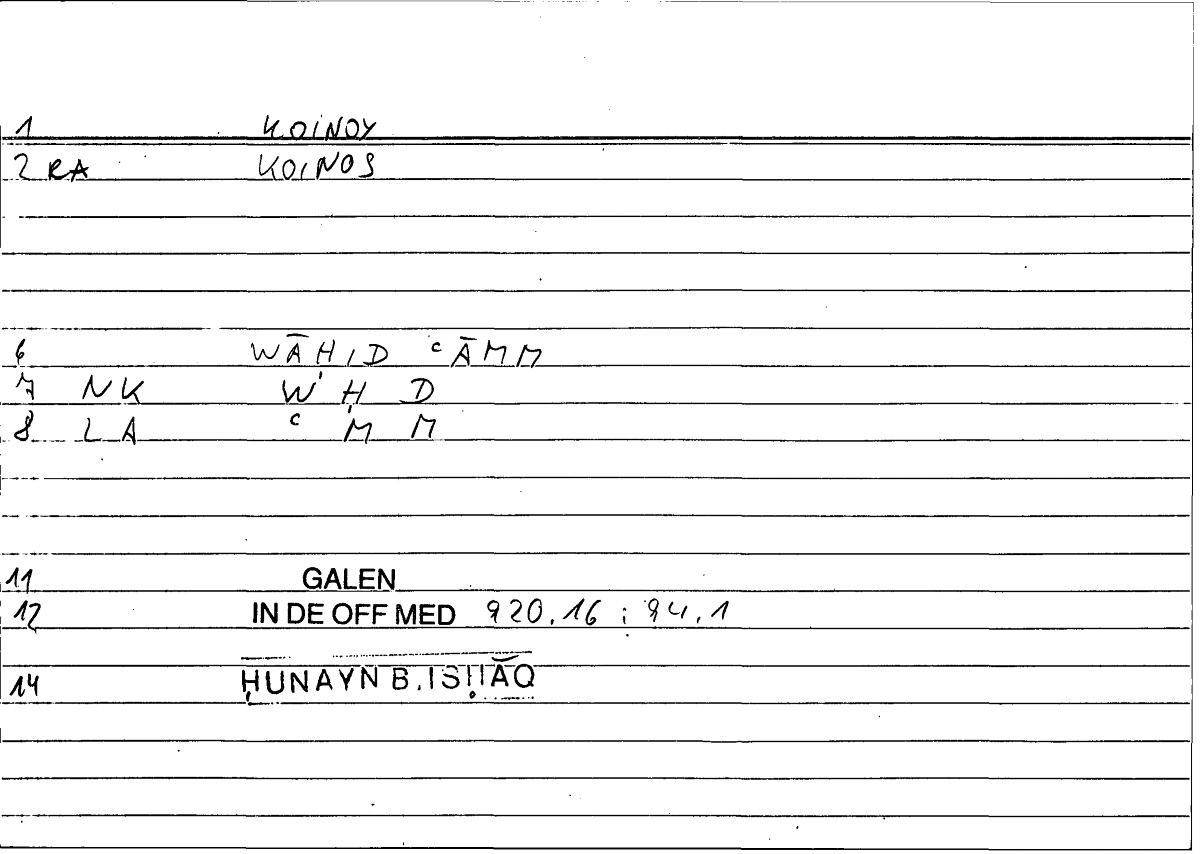 1 KOINOY
2 RA KOINOS
6 WĀHID ᶜĀMM
7 NK W Ḥ D
8 LA ᶜ M M
11 GALEN
12 IN DE OFF MED 920,16 ; 94,1
14 ḤUNAYN B. ISḤĀQ